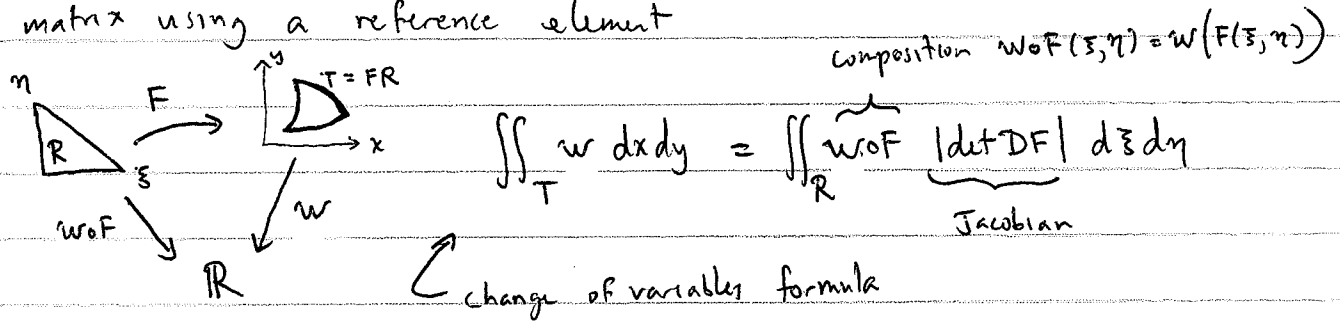 matrix using a reference element
composition w∘F(ξ,η) = w(F(ξ,η))
η
F
y
T = FR
R
ξ
x
∬_T w dx dy = ∬_R w∘F |det DF| dξ dη
Jacobian
w∘F
w
ℝ
change of variables formula